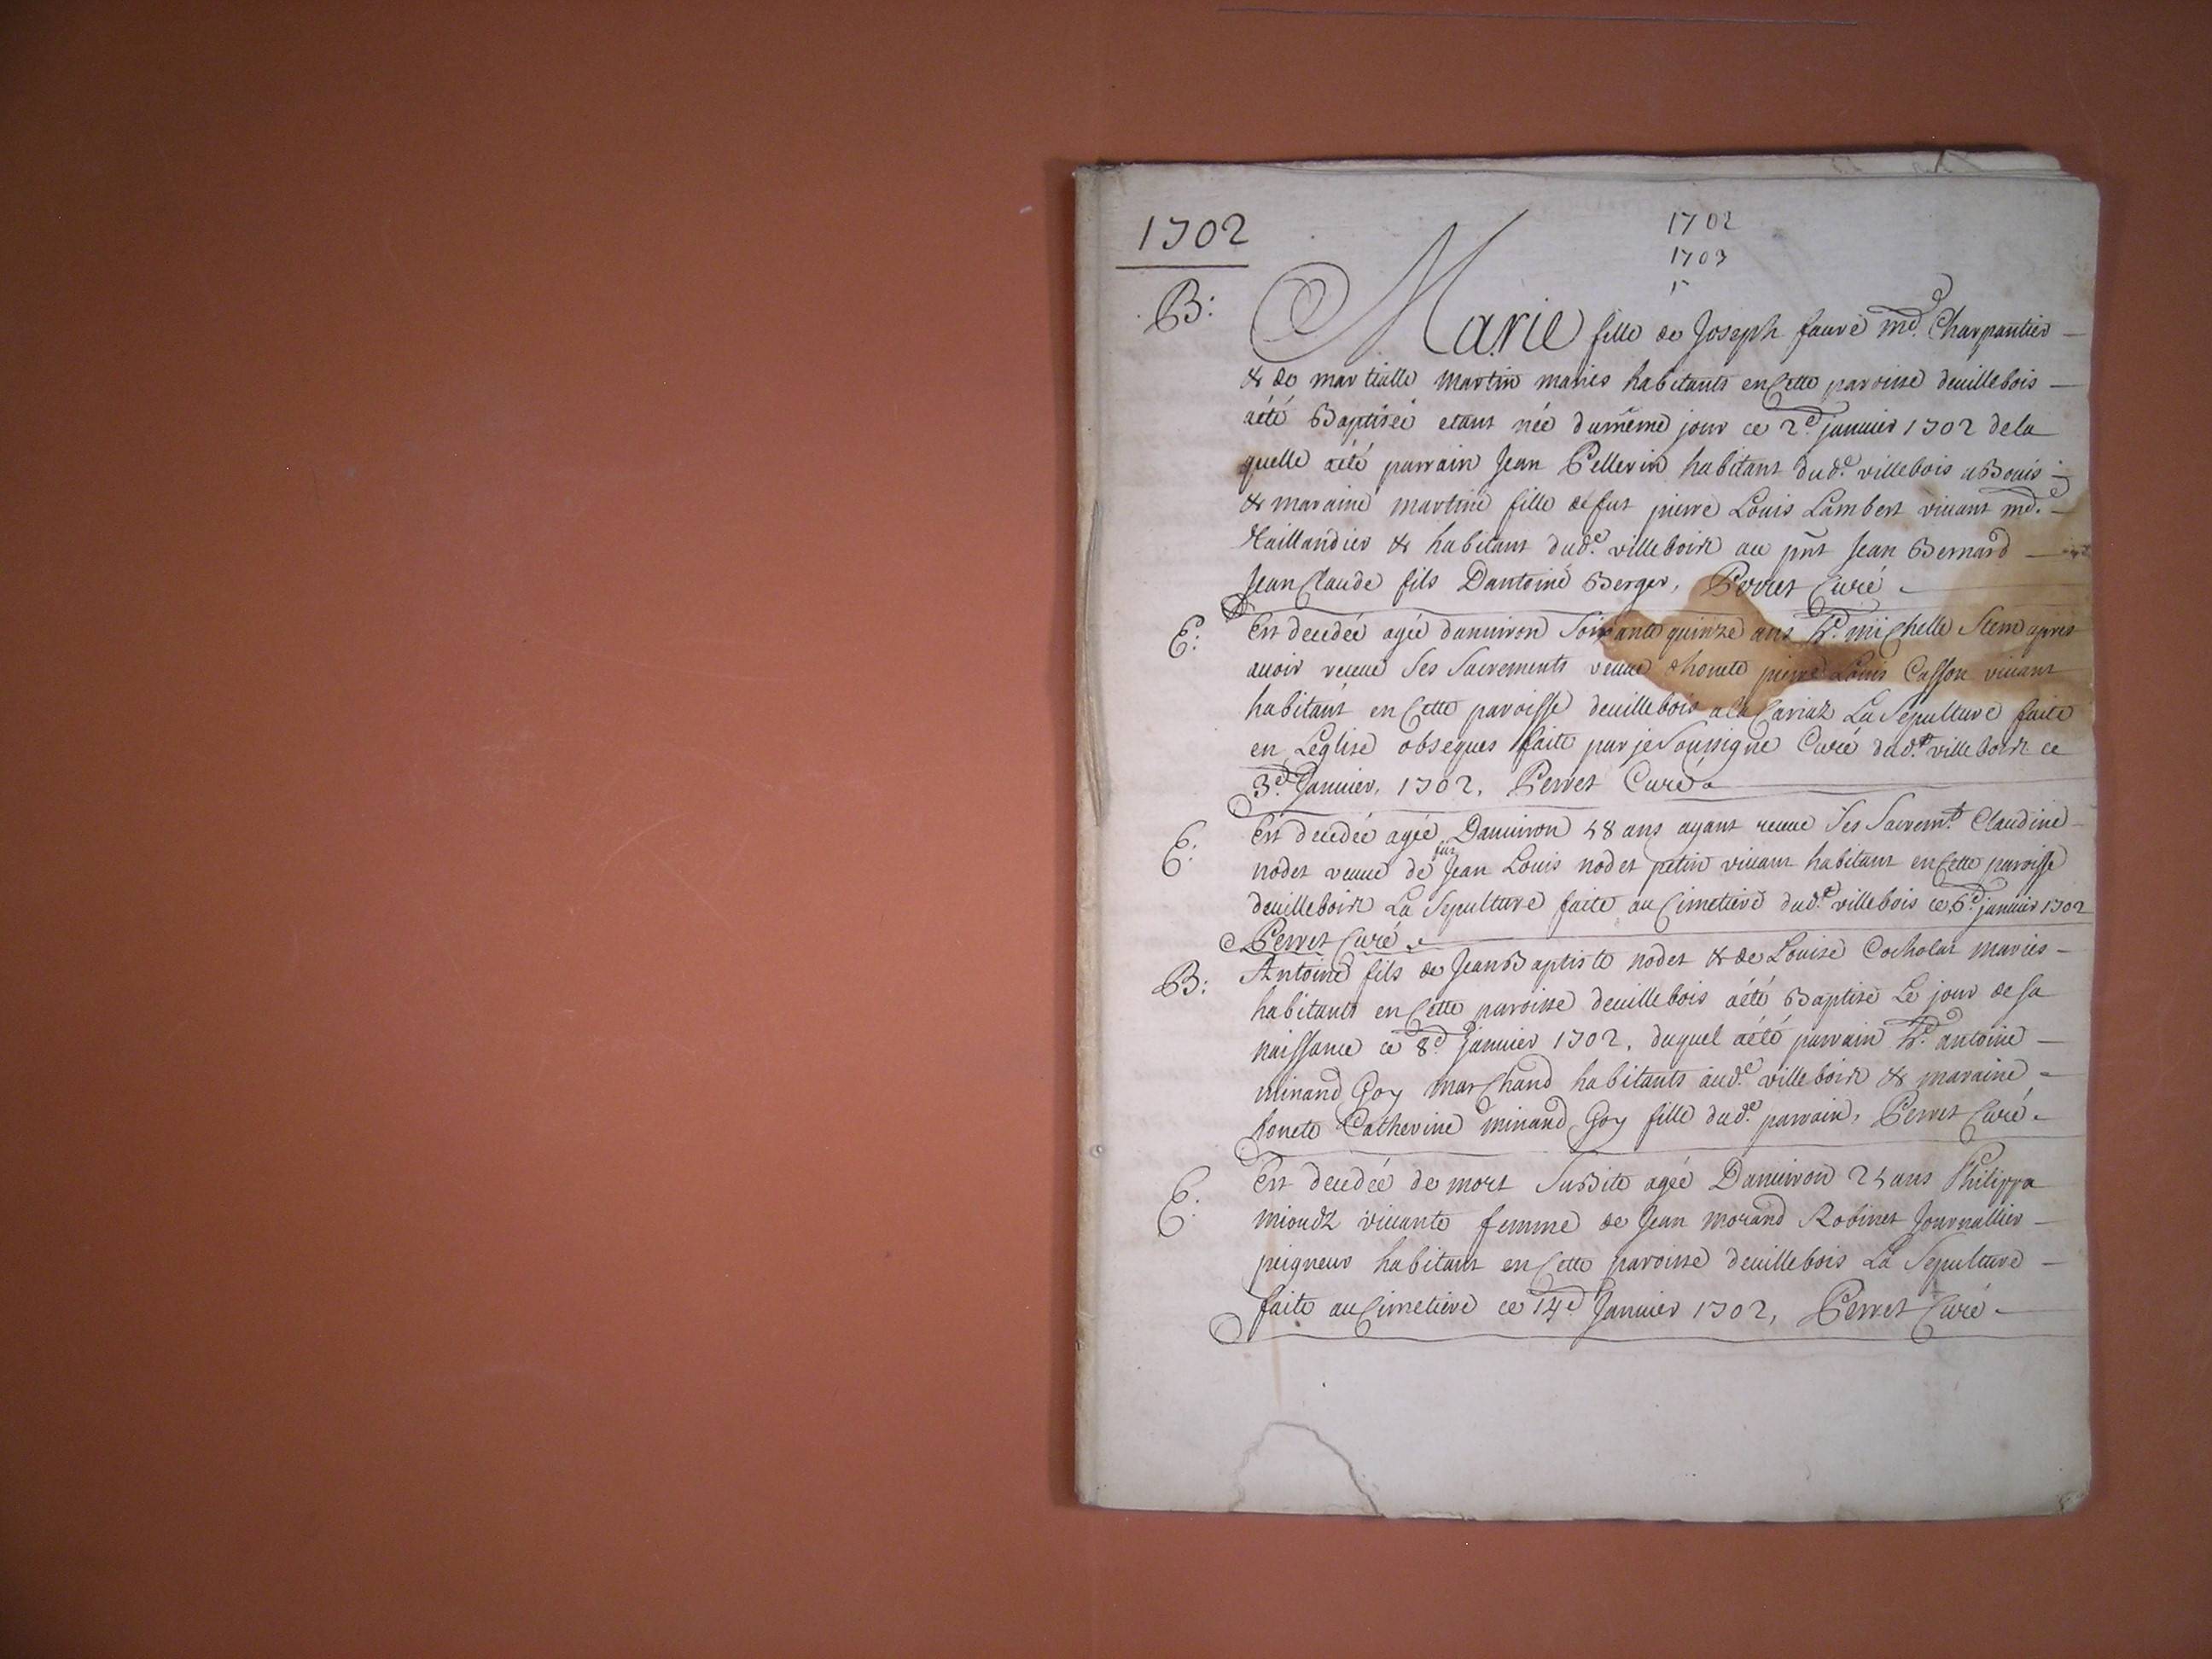 1702
1702
1703
B: Marie fille de Joseph faure md. Charpantier
& de martialle martin mariés habitants en Cette paroisse deuillebois
aété Baptiseé etant née dumême jour ce 2e. januier 1702 dela
quelle aété parrain Jean Pellerin habitant dud.e villebois a Bouis
& maraine martine fille de fut pierre Louis Lambert viuant md.
Taillandier & habitant dud.e villebois au pnt Jean Bernard
Jean Claude fils Dantoine Berger, Perret Curé
E: Est decedeé ageé danuiron Soixante quinze ans h.e michelle Stem apres
auoir receue Ses Sacrements veuue dhonete pierre Louis Casson viuant
habitant en Cette paroisse deuillebois ala Cariaz La Sepulture faite
en Léglise obseques faite par je Soussigne Curé dud.t villebois ce
3e. Januier, 1702, Perret Curé
E: Est decedeé ageé Danuiron 48 ans ayant receue Ses Sacremts. Claudine
nodet veuue de fut Jean Louis nodet petin viuant habitant en Cette paroisse
deuillebois La Sepulture faite au Cimetiere dud.e villebois ce 6e. januier 1702
Perret Curé
B: Antoine fils de Jean Baptiste nodet & de Louise Cocholat mariés
habitants en Cette paroisse deuillebois aété Baptisé Le jour de sa
naissance ce 8e. Januier 1702, duquel aété parrain h.e antoine
minand Goy marchand habitants aud.e villebois & maraine
honete Catherine minand Goy fille dud.e parrain, Perret Curé
E: Est decedeé de mort SuBite ageé Danuiron 24 ans Philippa
mioudz viuante femme de Jean morand Robinet Journallier
peigneur habitant en Cette paroisse deuillebois La Sepulture
faite au Cimetiere ce 14e Januier 1702, Perret Curé